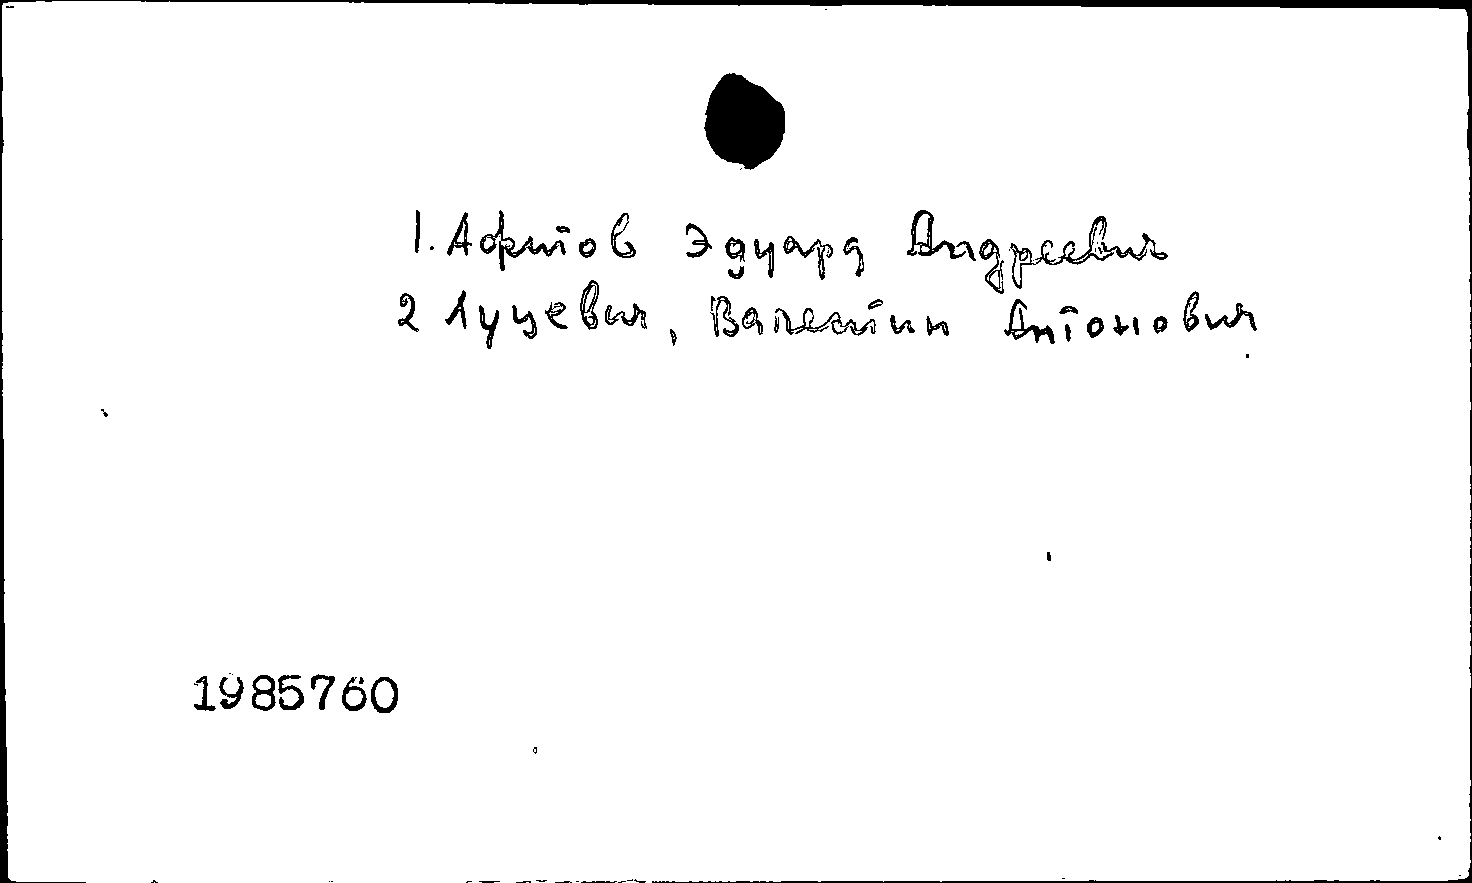 1. Афитов Эдуард Андреевич
2 Луцевич, Валентин Антонович
1985760